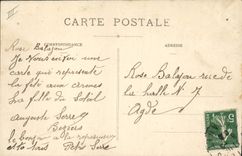 CARTE POSTALE
CORRESPONDANCE
ADRESSE
Rose Balajou
Je Vous envoi une
carte qui represente
la fete aux arenes
La fille du Soleil
Auguste Serre
Beziers
Rose Balajou rue de
la halle N 7
Agde
5